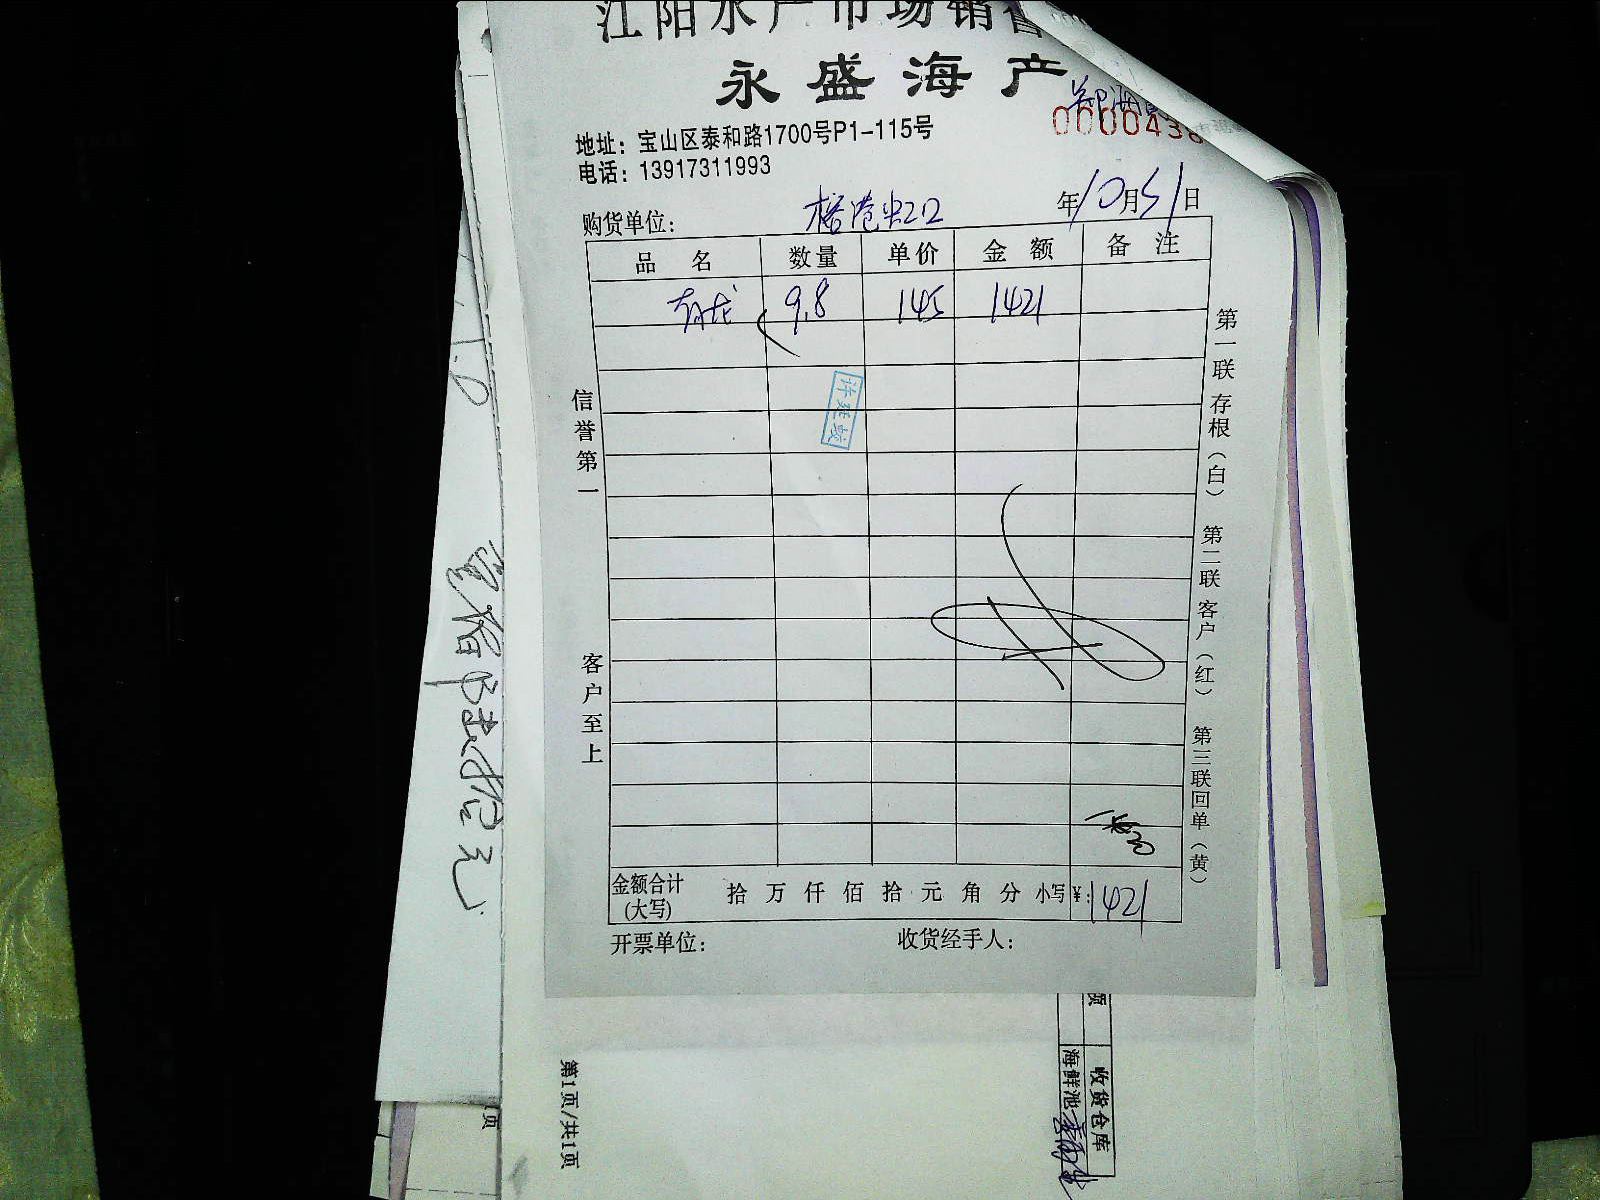 江阳水产市场销售
永盛海产
0000438
地址：宝山区泰和路1700号P1-115号
电话：13917311993
购货单位：
年10月31日
品名 数量 单价 金额 备注
青龙 9.8 145 1421
信誉第一
客户至上
第一联存根（白） 第二联客户（红） 第三联回单（黄）
金额合计（大写） 拾万仟佰拾元角分 小写¥：1421
开票单位：
收货经手人：
收货仓库
海鲜池
第1页/共1页